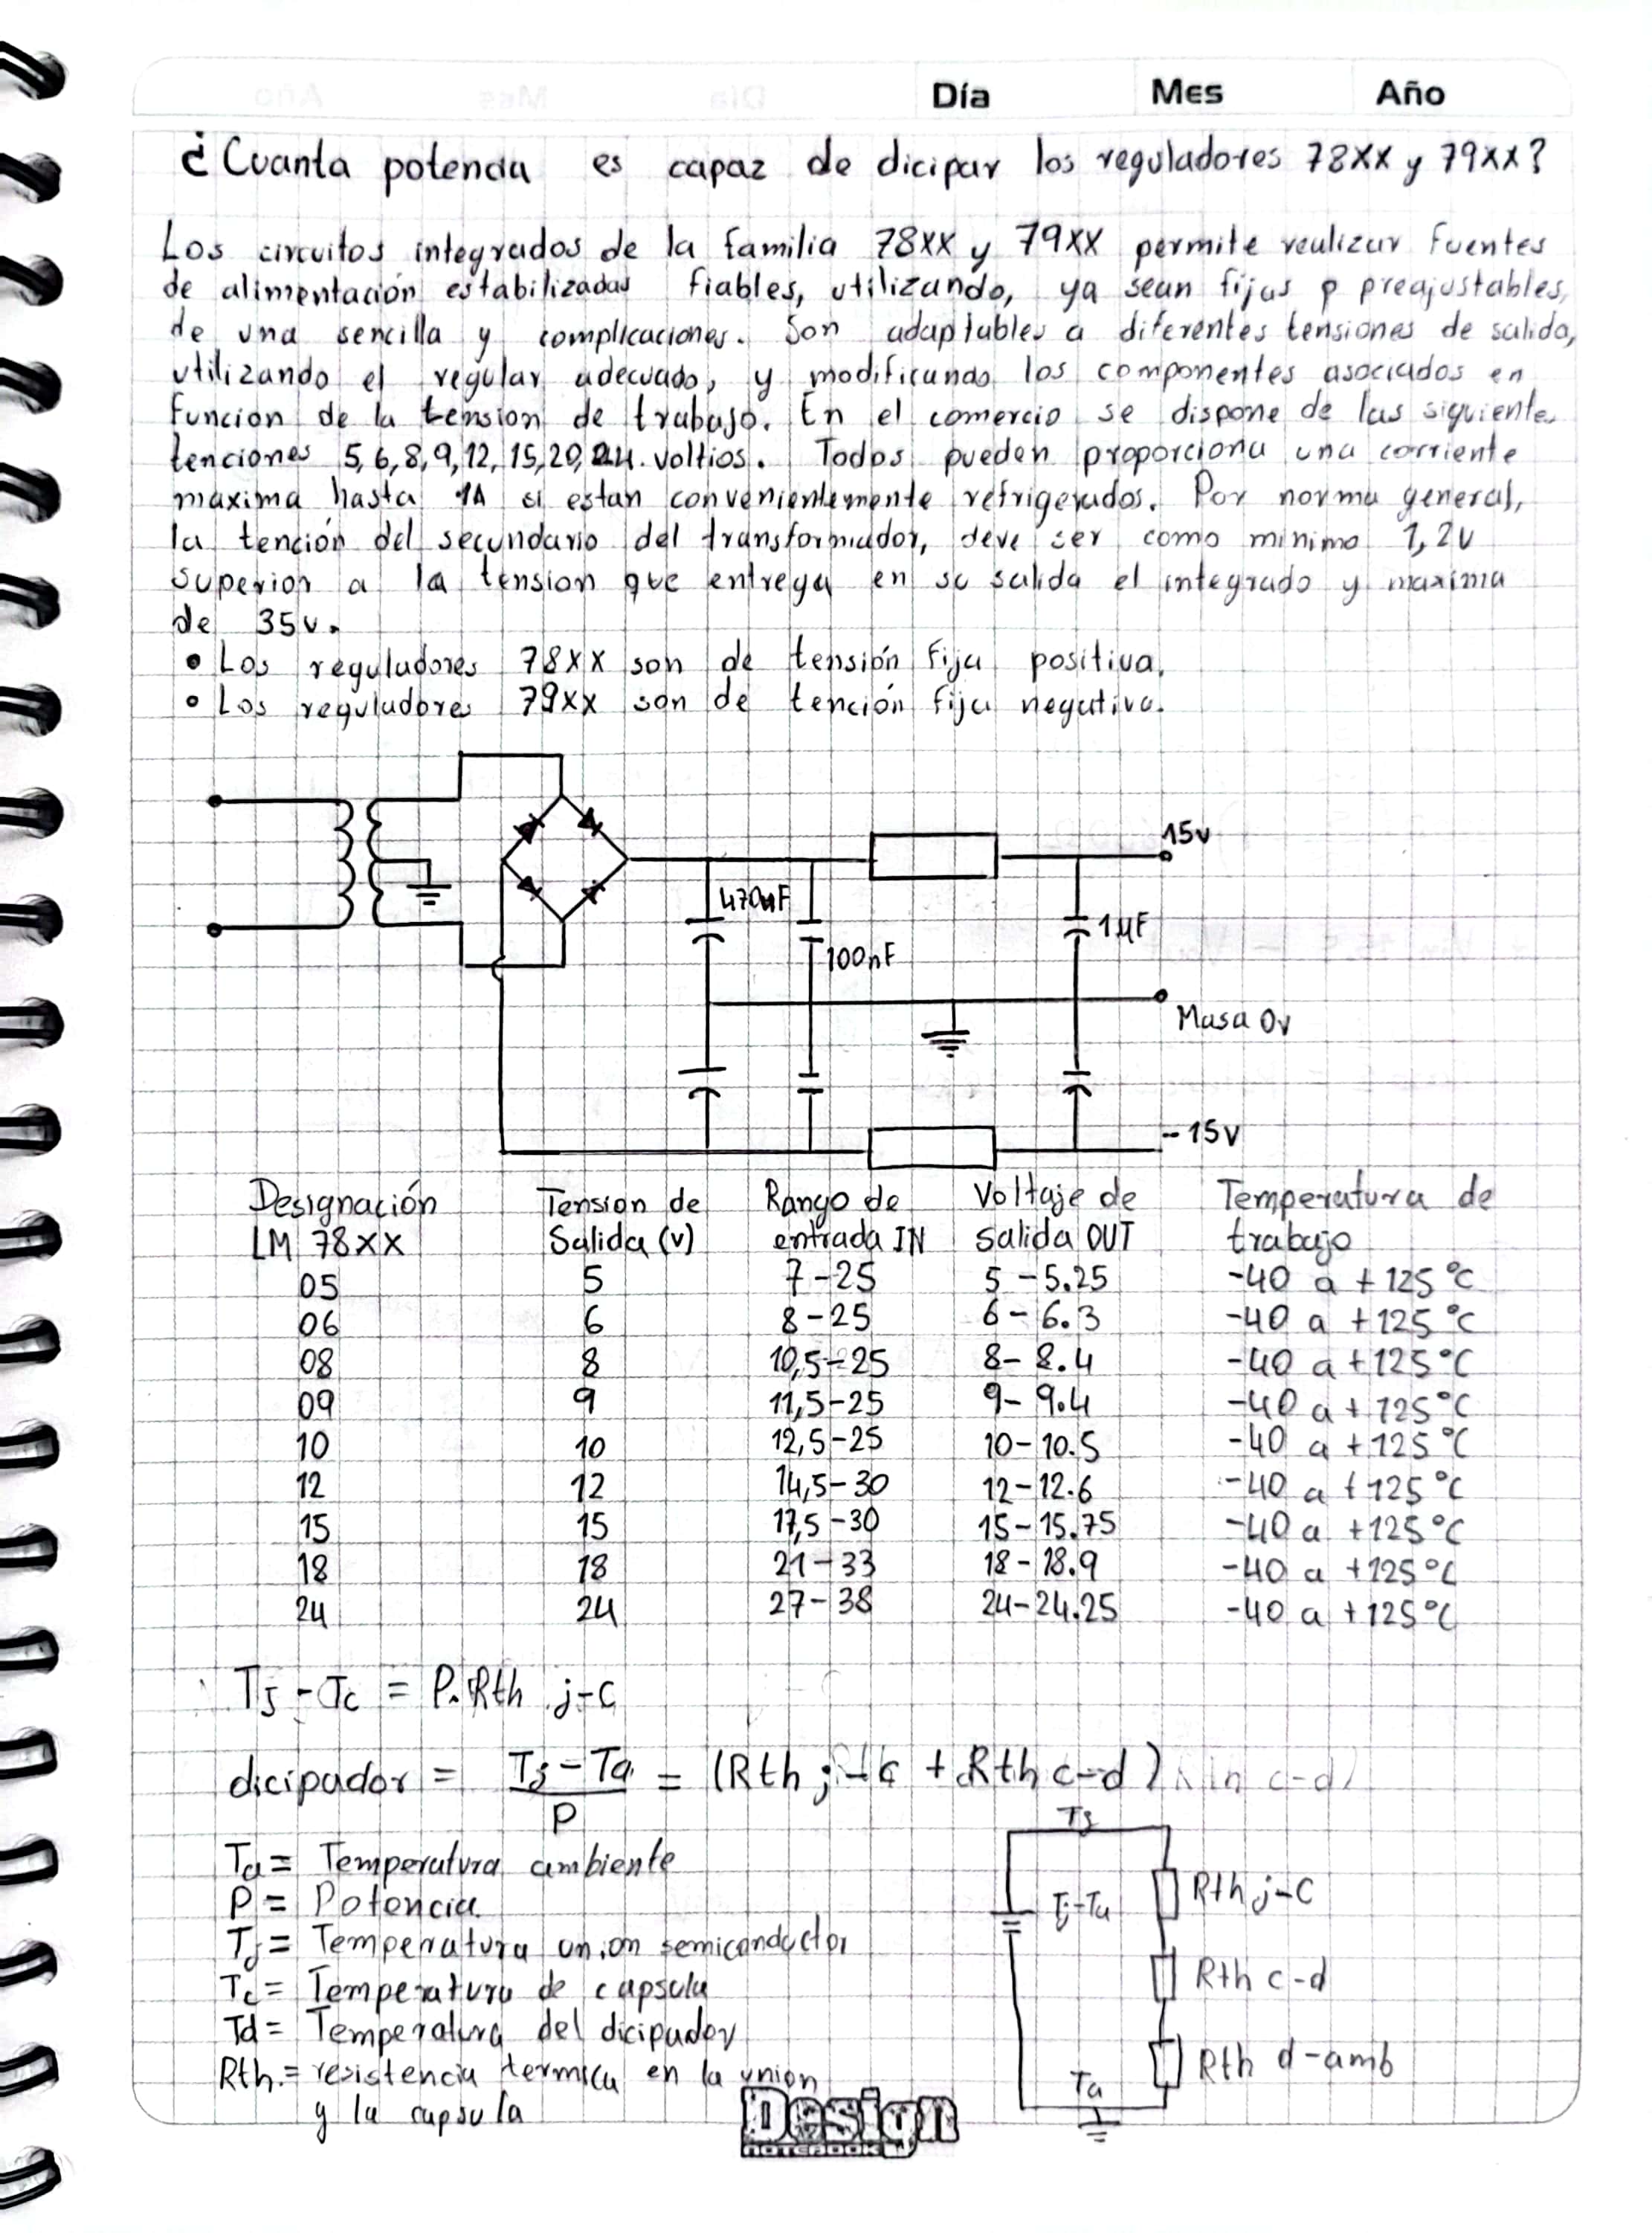 Día Mes Año
¿Cuanta potencia es capaz de dicipar los reguladores 78XX y 79XX?
Los circuitos integrados de la familia 78XX y 79XX permite realizar fuentes
de alimentación estabilizadas fiables, utilizando, ya sean fijas p preajustables,
de una sencilla y complicaciones. Son adaptables a diferentes tensiones de salida,
utilizando el regular adecuado, y modificando los componentes asociados en
funcion de la tension de trabajo. En el comercio se dispone de las siguientes
tenciones 5,6,8,9,12,15,20,24. voltios. Todos pueden proporciona una corriente
maxima hasta 1A si estan convenientemente refrigerados. Por norma general,
la tención del secundario del transformador, deve ser como minimo 1,2v
superior a la tension que entrega en su salida el integrado y maxima
de 35v.
• Los reguladores 78XX son de tensión fija positiva.
• Los reguladores 79XX son de tención fija negativa.
15v
470uF
1µF
100nF
Masa 0v
-15v
Designación Tension de Rango de Voltaje de Temperatura de
LM 78XX Salida (v) entrada IN salida OUT trabajo
05 5 7-25 5-5.25 -40 a +125°C
06 6 8-25 6-6.3 -40 a +125°C
08 8 10,5-25 8-8.4 -40 a +125°C
09 9 11,5-25 9-9.4 -40 a +125°C
10 10 12,5-25 10-10.5 -40 a +125°C
12 12 14,5-30 12-12.6 -40 a +125°C
15 15 17,5-30 15-15.75 -40 a +125°C
18 18 21-33 18-18.9 -40 a +125°C
24 24 27-38 24-24.25 -40 a +125°C
Tj - Tc = P. Rth j-c
dicipador = Tj - Ta / P = (Rth j-c + Rth c-d)
Ta = Temperatura ambiente
P = Potencia
Tj = Temperatura union semiconductor
Tc = Temperatura de capsula
Td = Temperatura del dicipador
Rth = resistencia termica en la union
y la capsula
Tj
Tj-Ta
Rth j-c
Rth c-d
Rth d-amb
Ta
Design
NOTEBOOK